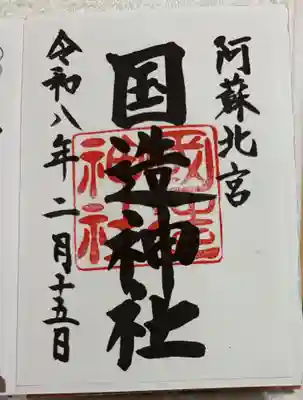 阿蘇北宮
国造神社
令和八年二月十五日
國造
神社